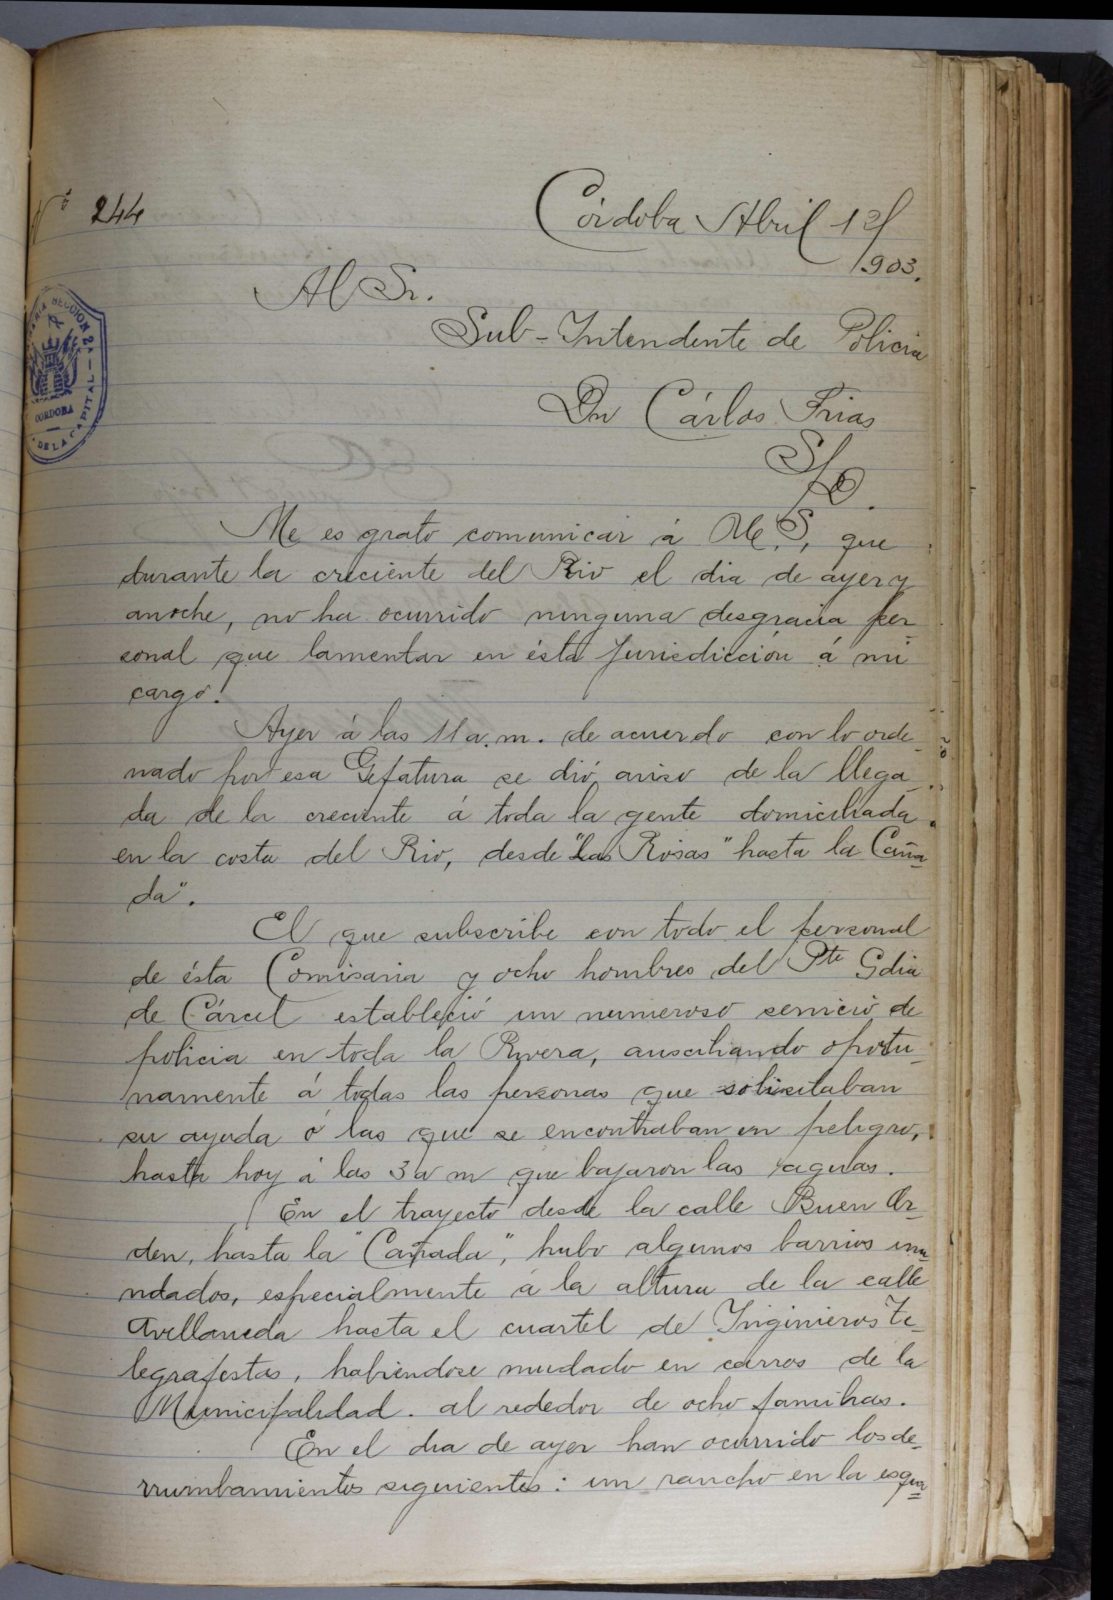 Nº 244
Córdoba Abril 12/
1903.
Al Sr.
Sub-Intendente de Policia
Dn Cárlos Frias
S/D.
COMISARIA SECCION 2ª
CORDOBA
DE LA CAPITAL
Me es grato comunicar á U.S, que
durante la creciente del Rio el dia de ayer y
anoche, no ha ocurrido ninguna desgracia per
sonal que lamentar en ésta Jurisdicción á mi
cargo.
Ayer á las 11 a.m. de acuerdo con lo orde-
nado por esa Gefatura se dió aviso de la llega
da de la creciente á toda la gente domiciliada
en la costa del Rio, desde "Las Rosas" hasta la Caña=
da".
El que subscribe con todo el personal
de ésta Comisaria y ocho hombres del Pte Gdia
de Cárcel estableció un numeroso servicio de
policia en toda la Rivera, auxciliando oportu-
namente á todas las personas que solicitaban
su ayuda ó las que se encontraban en peligro,
hasta hoy á las 3 a m que bajaron las aguas.
En el trayecto desde la calle Buen Or=
den, hasta la "Cañada", hubo algunos barrios inu=
ndados, especialmente á la altura de la calle
Avellaneda hasta el cuartel de Inginieros Te-
legrafestas, habiendose mudado en carros de la
Municipalidad. al rededor de ocho familias.
En el dia de ayer han ocurrido los de-
rrumbamientos siguientes: un rancho en la esqui=